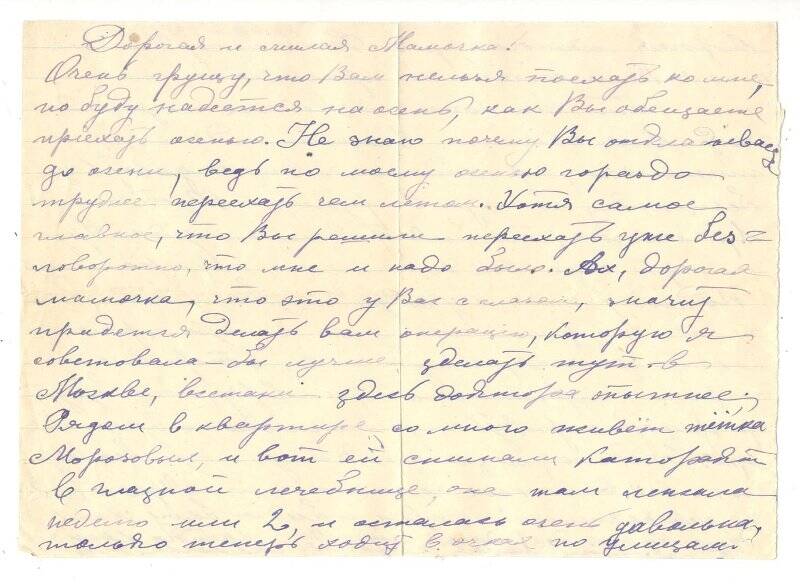 Дорогая и милая Мамочка!
Очень грущу, что Вам нельзя поехать ко мне,
но буду надеется на осень, как Вы обещаете
приехать осенью. Не знаю почему Вы откладываете
до осени, ведь по моему осенью гораздо
труднее переехать чем летом. Хотя самое
главное, что Вы решили переехать уже без=
поворотно, что мне и надо было. Ах, дорогая
мамочка, что это у Вас с глазом, значит
придется делать вам операцию, которую я
советовала-бы лучше зделать тут-в
Москве, всетаки здесь доктора опытнее,
Рядом в квартире со мною живёт тётка
Морозовых, и вот ей снимали катаракт
в глазной лечебнице, она там лежала
неделю или 2, и осталась очень давольна,
только теперь ходит в очках по улицам.